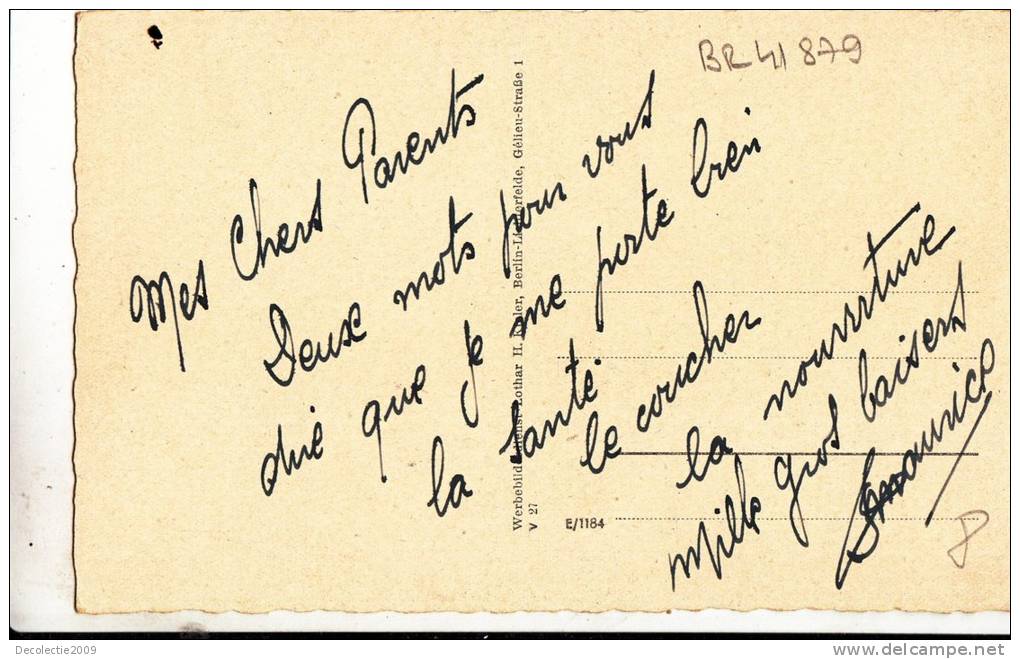 BR 41 879
Mes Chers Parents
Deux mots pour vous
dire que je me porte bien
la santé
le coucher
la nourriture
mille gros baisers
Maurice
8
Werbebilddienst Lothar H. Berlin-Lichterfelde, Gélieu-Straße 1
V 27
E/1184
Decolectie2009
www.delcampe.net